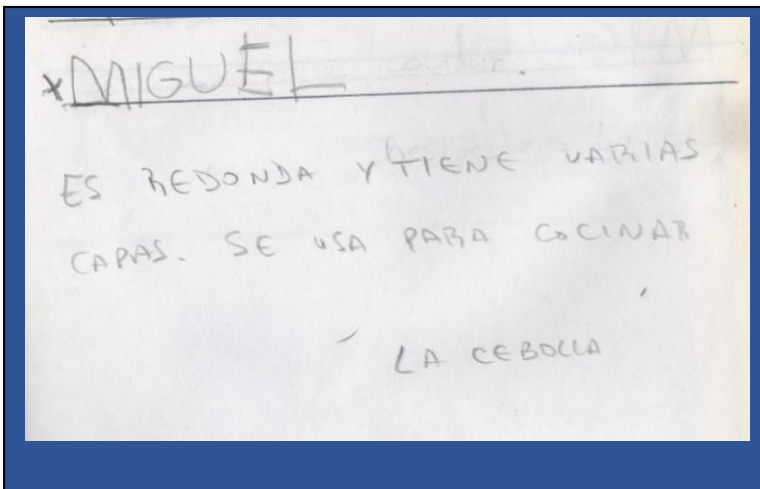 x MIGUEL
ES REDONDA Y TIENE VARIAS
CAPAS. SE USA PARA COCINAR
LA CEBOLLA